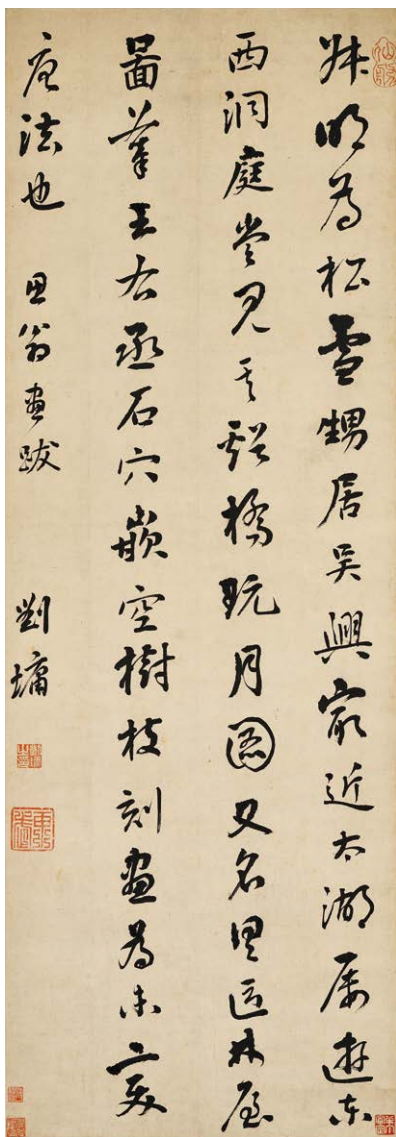 叔明為松雪甥居吳興最近太湖屢遊東
西洞庭嘗見其谿橋玩月圖又名具區林屋
圖筆王右丞石穴嵌空樹枝刻畫為未變
唐法也 思翁畫跋 劉墉